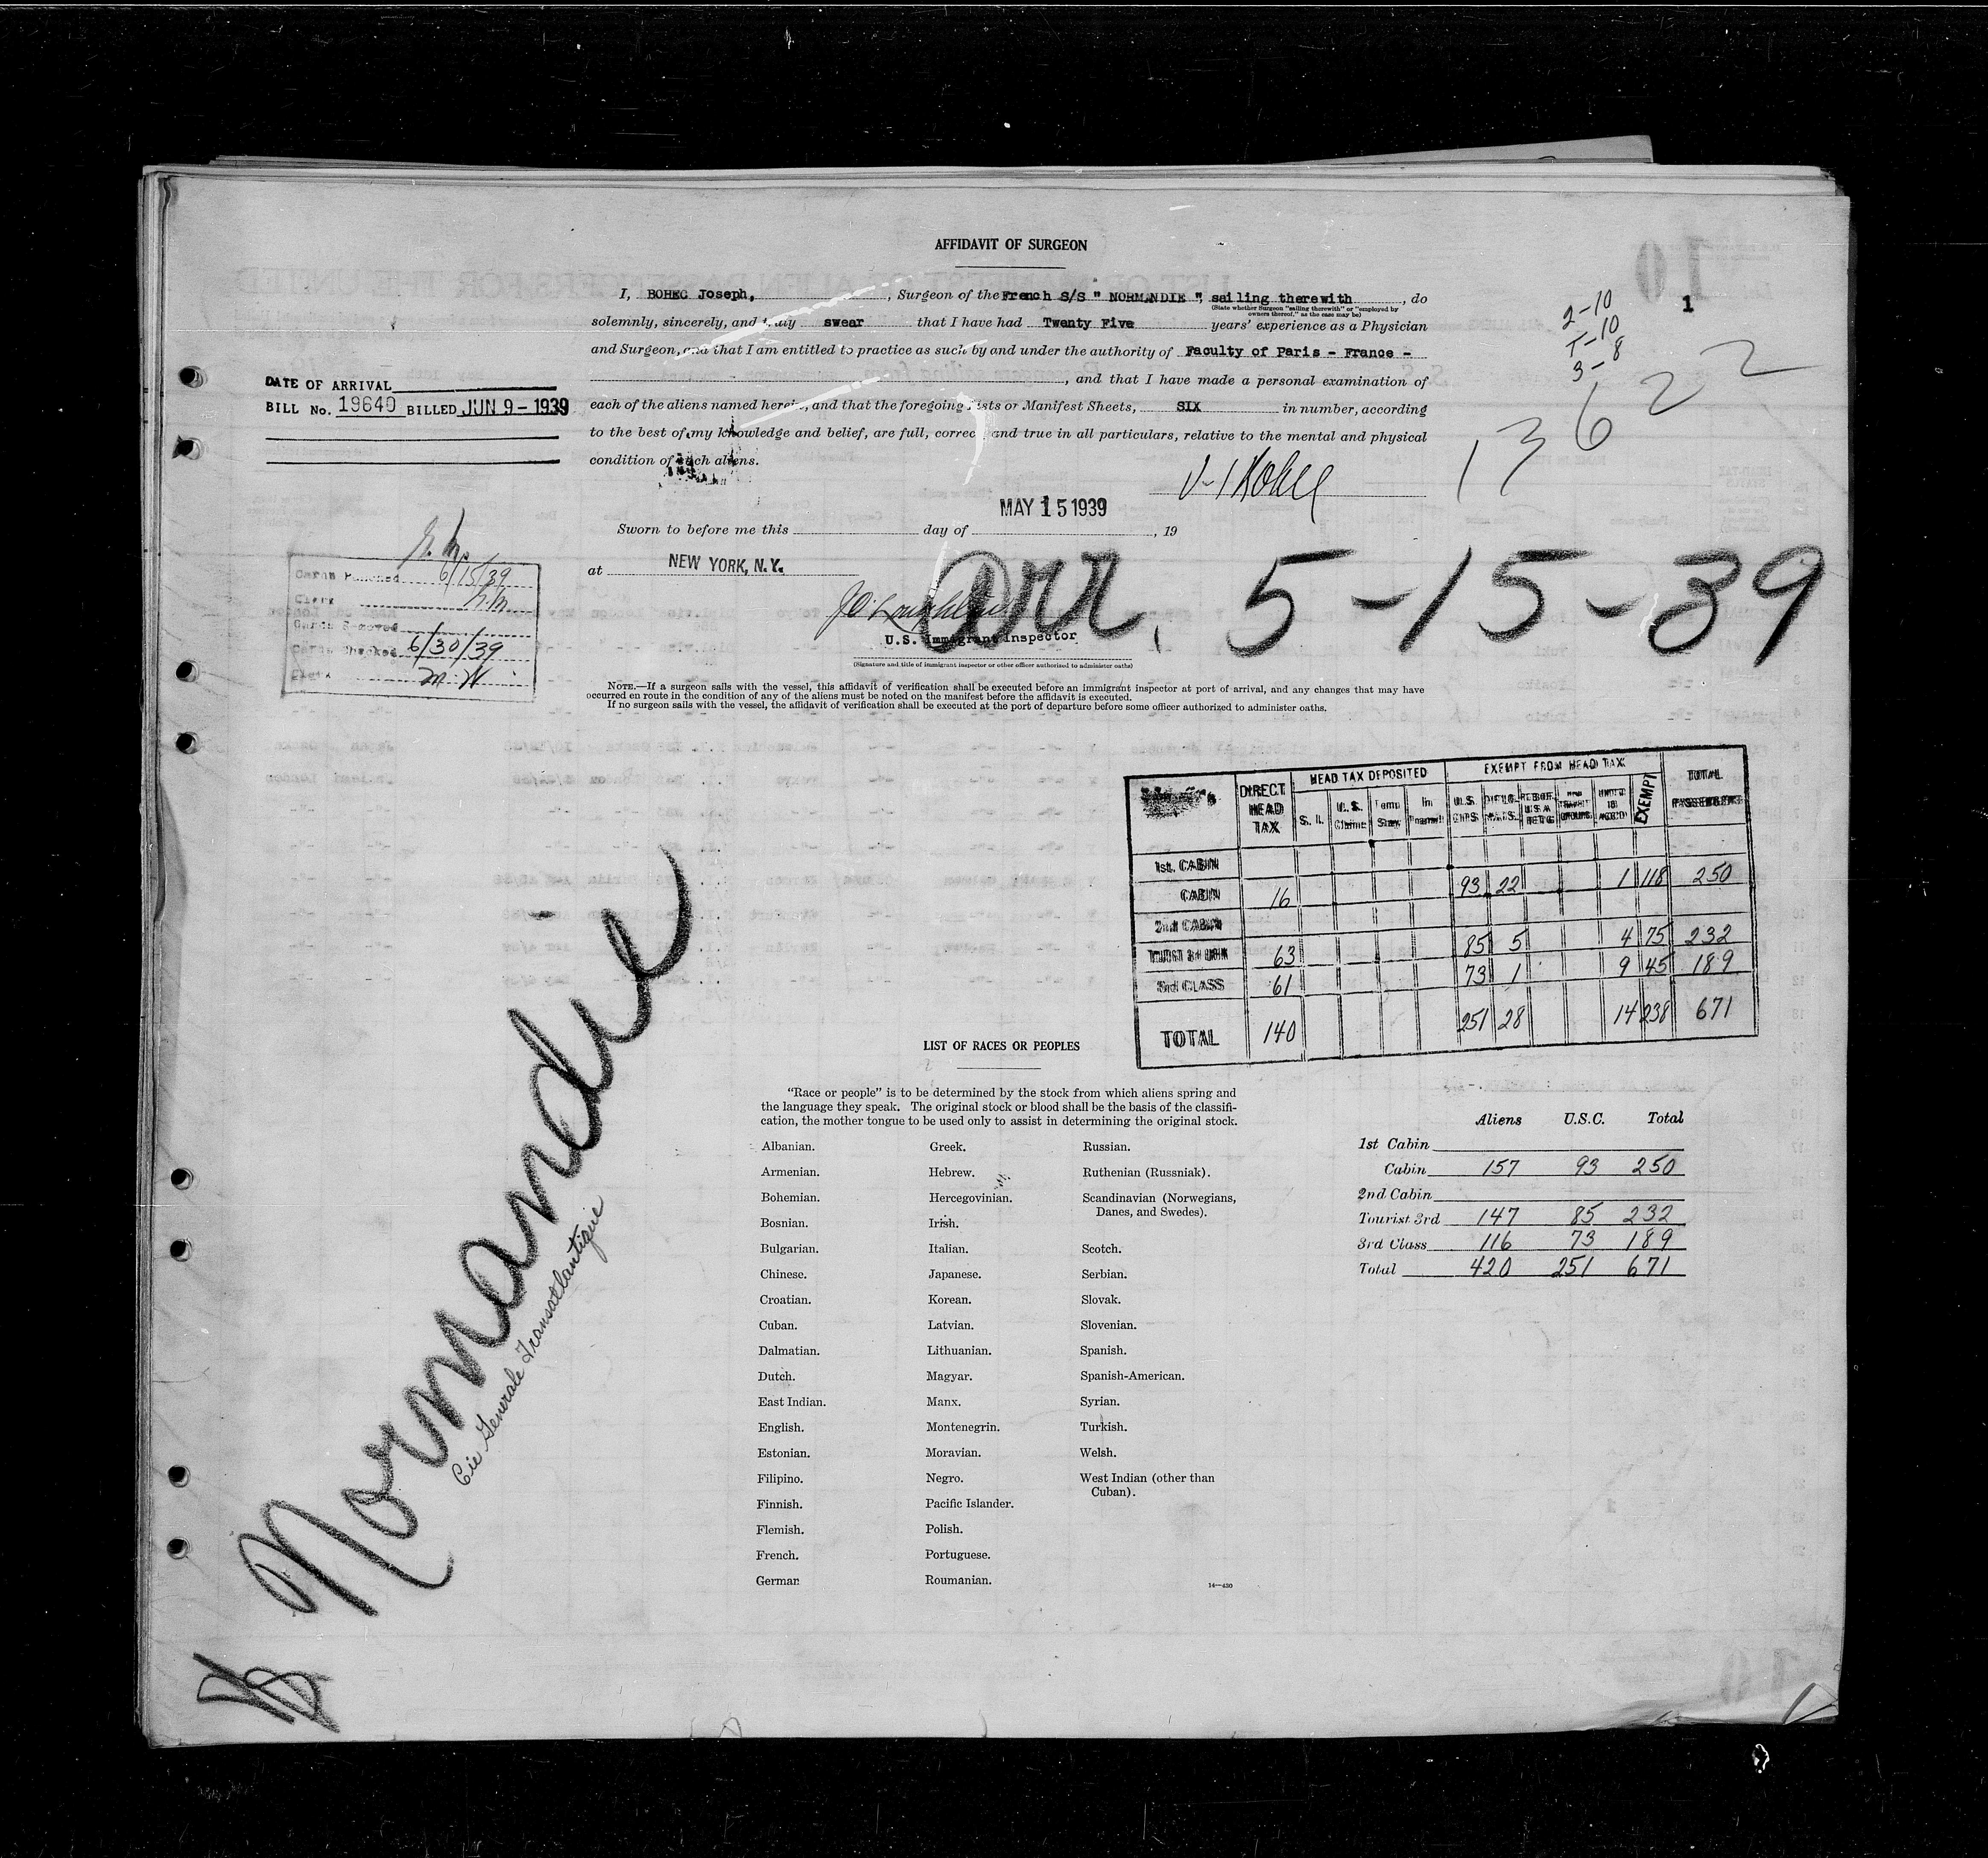 AFFIDAVIT OF SURGEON
I, BOHEC Joseph, , Surgeon of the French S/S " NORMANDIE ", sailing therewith , do
(State whether Surgeon "sailing therewith" or "employed by
owners thereof," as the case may be)
solemnly, sincerely, and truly swear that I have had Twenty Five years' experience as a Physician
and Surgeon, and that I am entitled to practice as such by and under the authority of Faculty of Paris - France -
, and that I have made a personal examination of
each of the aliens named herein, and that the foregoing Lists or Manifest Sheets, SIX in number, according
to the best of my knowledge and belief, are full, correct and true in all particulars, relative to the mental and physical
condition of such aliens.
1
2-10
T-10
3-8
13622
DATE OF ARRIVAL
BILL No. 19640 BILLED JUN 9 - 1939
MAY 15 1939
Sworn to before me this day of , 19
at NEW YORK, N.Y.
Arr. 5-15-39
U.S. Immigrant Inspector
(Signature and title of immigrant inspector or other officer authorized to administer oaths)
6/15/39
Clerk
6/30/39
Clerk M.W.
NOTE.—If a surgeon sails with the vessel, this affidavit of verification shall be executed before an immigrant inspector at port of arrival, and any changes that may have
occurred en route in the condition of any of the aliens must be noted on the manifest before the affidavit is executed.
If no surgeon sails with the vessel, the affidavit of verification shall be executed at the port of departure before some officer authorized to administer oaths.
DIRECT HEAD TAX HEAD TAX DEPOSITED EXEMPT FROM HEAD TAX TOTAL
S. I. U.S. Temp In U.S. EXEMPT
1st. CABIN
CABIN 16 93 22 1 118 250
2nd CABIN
TOURIST 3rd 63 85 5 4 75 232
3rd CLASS 61 73 1 9 45 189
TOTAL 140 251 28 14 238 671
Normandie
Cie Generale Transatlantique
LIST OF RACES OR PEOPLES
"Race or people" is to be determined by the stock from which aliens spring and
the language they speak. The original stock or blood shall be the basis of the classifi-
cation, the mother tongue to be used only to assist in determining the original stock.
Albanian. Greek. Russian.
Armenian. Hebrew. Ruthenian (Russniak).
Bohemian. Hercegovinian. Scandinavian (Norwegians,
Danes, and Swedes).
Bosnian. Irish.
Bulgarian. Italian. Scotch.
Chinese. Japanese. Serbian.
Croatian. Korean. Slovak.
Cuban. Latvian. Slovenian.
Dalmatian. Lithuanian. Spanish.
Dutch. Magyar. Spanish-American.
East Indian. Manx. Syrian.
English. Montenegrin. Turkish.
Estonian. Moravian. Welsh.
Filipino. Negro. West Indian (other than
Cuban).
Finnish. Pacific Islander.
Flemish. Polish.
French. Portuguese.
German Roumanian.
14—430
Aliens U.S.C. Total
1st Cabin
Cabin 157 93 250
2nd Cabin
Tourist 3rd 147 85 232
3rd Class 116 73 189
Total 420 251 671